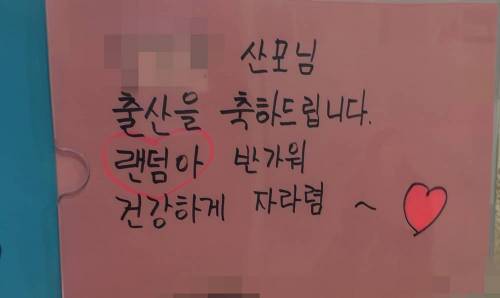 산모님
출산을 축하드립니다.
랜덤아 반가워
건강하게 자라렴 ~